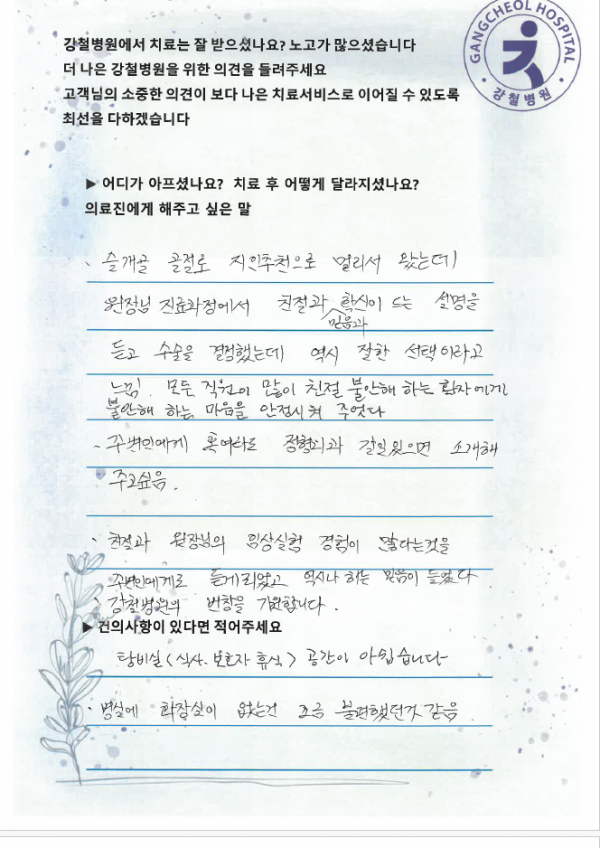 GANGCHEOL HOSPITAL
강철병원
강철병원에서 치료는 잘 받으셨나요? 노고가 많으셨습니다
더 나은 강철병원을 위한 의견을 들려주세요
고객님의 소중한 의견이 보다 나은 치료서비스로 이어질 수 있도록
최선을 다하겠습니다
▶ 어디가 아프셨나요? 치료 후 어떻게 달라지셨나요?
의료진에게 해주고 싶은 말
- 슬개골 골절로 지인추천으로 멀리서 왔는데
원장님 진료과정에서 친절과 확신이 드는 설명을
믿음과
듣고 수술을 결정했는데 역시 잘한 선택이라고
느낌. 모든 직원이 많이 친절 불안해 하는 환자에게
불안해 하는 마음을 안전시켜 주었다
- 주변인에게 혹여라도 정형외과 갈일있으면 소개해
주고싶음.
- 친절과 원장님의 임상실험 경험이 많다는것을
주변인에게로 듣게되었고 역시나 하는 믿음이 들었다
강철병원의 번창을 기원합니다.
▶ 건의사항이 있다면 적어주세요
탕비실(식사.보호자 휴식) 공간이 아쉽습니다
- 병실에 화장실이 없는건 조금 불편했던것 같음